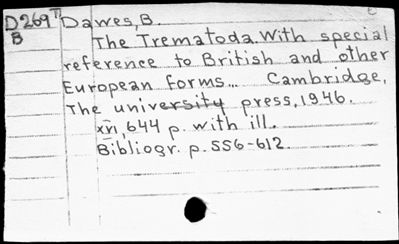 D269 T Dawes, B.
B The Trematoda. With special
reference to British and other
European forms... Cambridge,
The university press, 1946.
xvi, 644 p. with ill.
Bibliogr. p. 556-612.